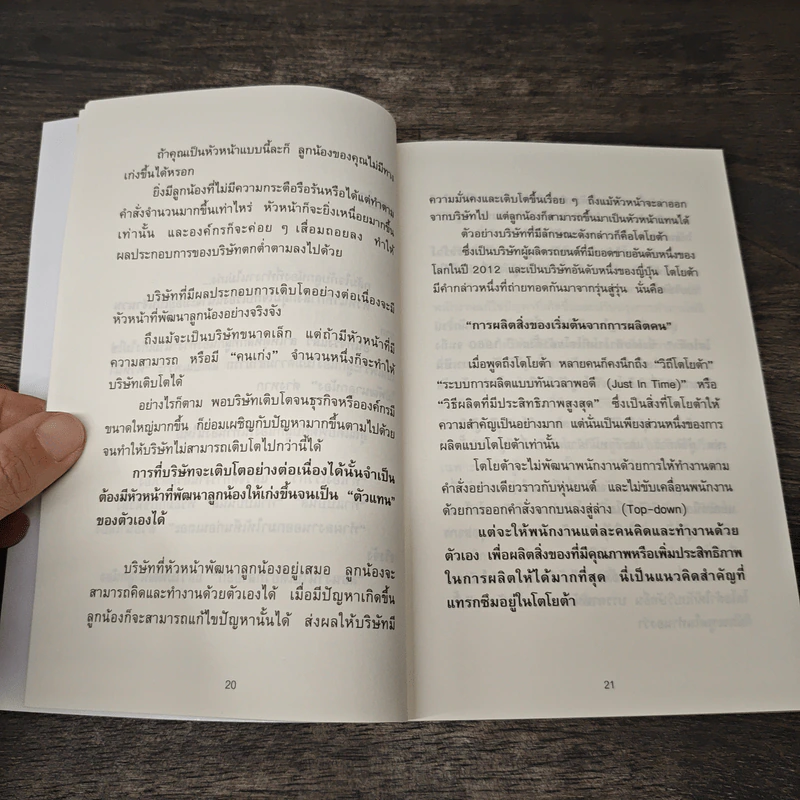 ถ้าคุณเป็นหัวหน้าแบบนี้ละก็ ลูกน้องของคุณไม่มีทาง
เก่งขึ้นได้หรอก
ยิ่งมีลูกน้องที่ไม่มีความกระตือรือร้นหรือได้แต่ทำตาม
คำสั่งจำนวนมากขึ้นเท่าไหร่ หัวหน้าก็จะยิ่งเหนื่อยมากขึ้น
เท่านั้น และองค์กรก็จะค่อย ๆ เสื่อมถอยลง ทำให้
ผลประกอบการของบริษัทตกต่ำตามลงไปด้วย
บริษัทที่มีผลประกอบการเติบโตอย่างต่อเนื่องจะมี
หัวหน้าที่พัฒนาลูกน้องอย่างจริงจัง
ถึงแม้จะเป็นบริษัทขนาดเล็ก แต่ถ้ามีหัวหน้าที่มี
ความสามารถ หรือมี "คนเก่ง" จำนวนหนึ่งก็จะทำให้
บริษัทเติบโตได้
อย่างไรก็ตาม พอบริษัทเติบโตจนธุรกิจหรือองค์กรมี
ขนาดใหญ่มากขึ้น ก็ย่อมเผชิญกับปัญหามากขึ้นตามไปด้วย
จนทำให้บริษัทไม่สามารถเติบโตไปกว่านี้ได้
การที่บริษัทจะเติบโตอย่างต่อเนื่องได้นั้นจำเป็น
ต้องมีหัวหน้าที่พัฒนาลูกน้องให้เก่งขึ้นจนเป็น "ตัวแทน"
ของตัวเองได้
บริษัทที่หัวหน้าพัฒนาลูกน้องอยู่เสมอ ลูกน้องจะ
สามารถคิดและทำงานด้วยตัวเองได้ เมื่อมีปัญหาเกิดขึ้น
ลูกน้องก็จะสามารถแก้ไขปัญหานั้นได้ ส่งผลให้บริษัทมี
20
ความมั่นคงและเติบโตขึ้นเรื่อย ๆ ถึงแม้หัวหน้าจะลาออก
จากบริษัทไป แต่ลูกน้องก็สามารถขึ้นมาเป็นหัวหน้าแทนได้
ตัวอย่างบริษัทที่มีลักษณะดังกล่าวก็คือโตโยต้า
ซึ่งเป็นบริษัทผู้ผลิตรถยนต์ที่มียอดขายอันดับหนึ่งของ
โลกในปี 2012 และเป็นบริษัทอันดับหนึ่งของญี่ปุ่น โตโยต้า
มีคำกล่าวหนึ่งที่ถ่ายทอดกันมาจากรุ่นสู่รุ่น นั่นคือ
"การผลิตสิ่งของเริ่มต้นจากการผลิตคน"
เมื่อพูดถึงโตโยต้า หลายคนก็คงนึกถึง "วิถีโตโยต้า"
"ระบบการผลิตแบบทันเวลาพอดี (Just In Time)" หรือ
"วิธีผลิตที่มีประสิทธิภาพสูงสุด" ซึ่งเป็นสิ่งที่โตโยต้าให้
ความสำคัญเป็นอย่างมาก แต่นั่นเป็นเพียงส่วนหนึ่งของการ
ผลิตแบบโตโยต้าเท่านั้น
โตโยต้าจะไม่พัฒนาพนักงานด้วยการให้ทำงานตาม
คำสั่งอย่างเดียวราวกับหุ่นยนต์ และไม่ขับเคลื่อนพนักงาน
ด้วยการออกคำสั่งจากบนลงสู่ล่าง (Top-down)
แต่จะให้พนักงานแต่ละคนคิดและทำงานด้วย
ตัวเอง เพื่อผลิตสิ่งของที่มีคุณภาพหรือเพิ่มประสิทธิภาพ
ในการผลิตให้ได้มากที่สุด นี่เป็นแนวคิดสำคัญที่
แทรกซึมอยู่ในโตโยต้า
21